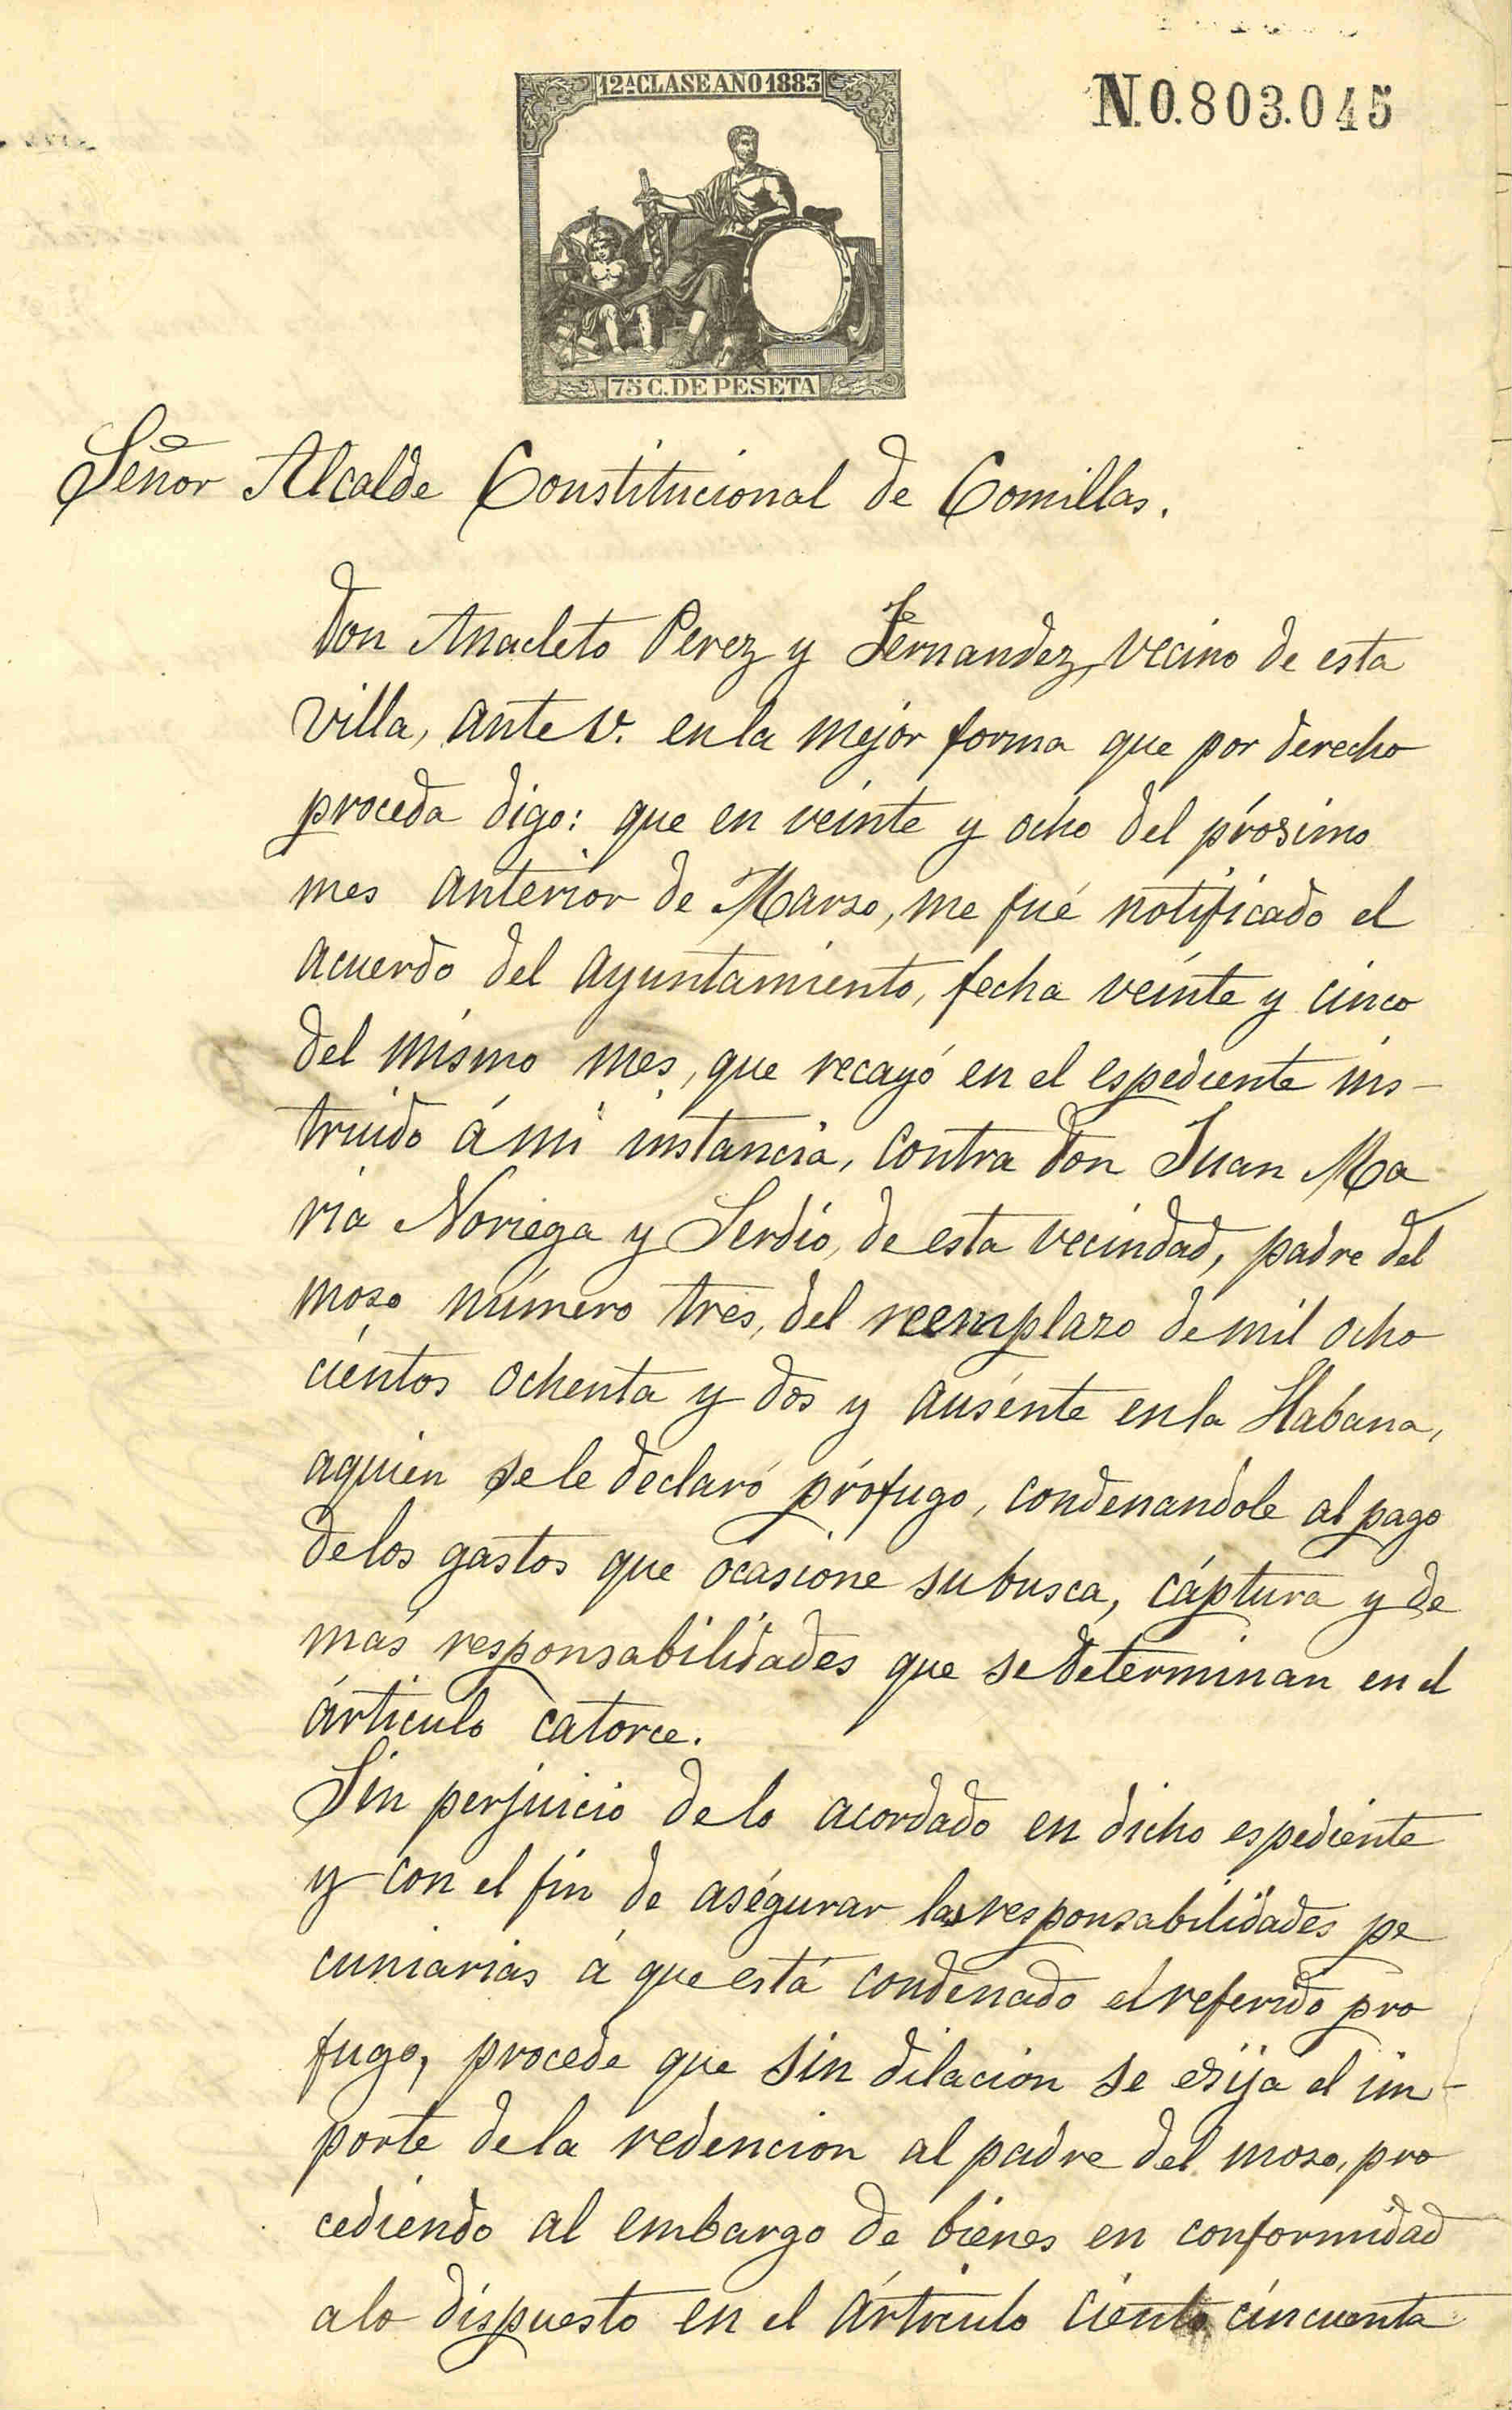 12ª CLASE AÑO 1883
N.0.803.045
75 C. DE PESETA
Señor Alcalde Constitucional de Comillas.
Don Anacleto Perez y Fernandez, vecino de esta
villa, ante V. en la mejor forma que por derecho
proceda digo: que en veinte y ocho del prosimo
mes anterior de Marzo, me fué notificado el
acuerdo del Ayuntamiento, fecha veinte y cinco
del mismo mes, que recayó en el espediente ins-
truido á mi instancia, contra Don Juan Ma
ria Noriega y Serdio, de esta vecindad, padre del
moso número tres, del reemplaso de mil ocho
cientos ochenta y dos y ausente en la Habana,
aquien se le declaró prófugo, condenandole al pago
de los gastos que ocasione su busca, cáptura y de
mas responsabilidades que se determinan en el
árticulo catorce.
Sin perjuicio de lo acordado en dicho espediente
y con el fin de asegurar las responsabilidades pe
cuniarias á que está condenado el referido pro
fugo, procede que sin dilacion se esija el im-
porte de la redencion al padre del moso, pro
cediendo al embargo de bienes en conformidad
alo dispuesto en el árticulo ciento cincuenta